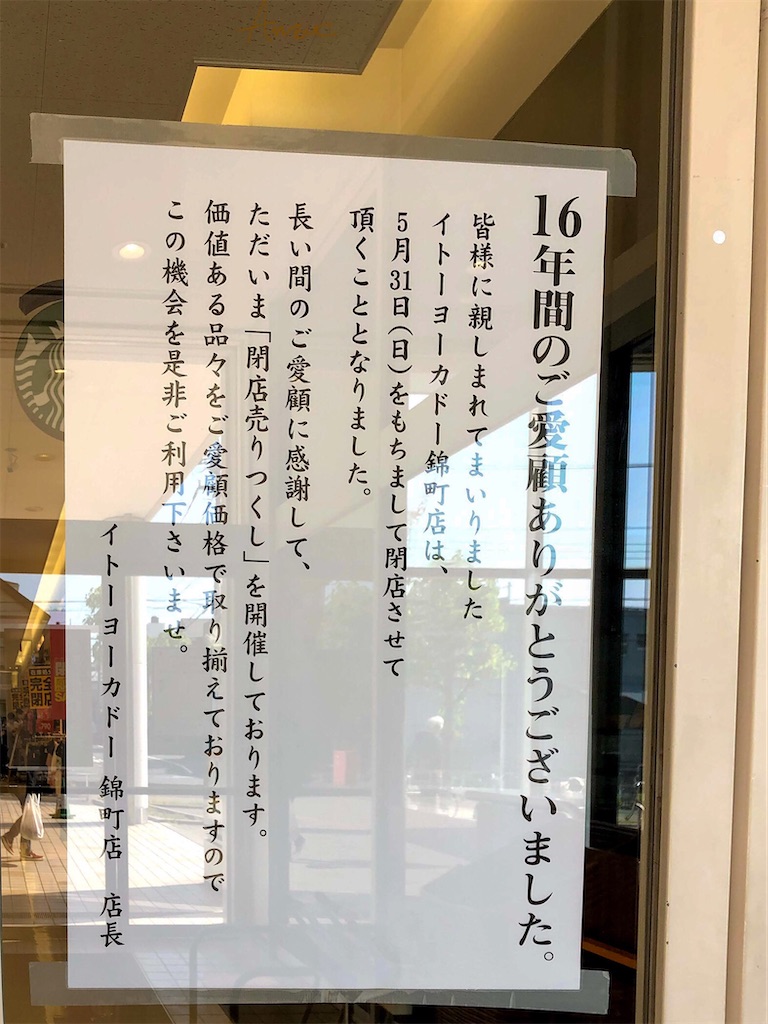 16年間のご愛顧ありがとうございました。
皆様に親しまれてまいりました
イトーヨーカドー錦町店は、
5月31日(日)をもちまして閉店させて
頂くこととなりました。
長い間のご愛顧に感謝して、
ただいま「閉店売りつくし」を開催しております。
価値ある品々をご愛顧価格で取り揃えておりますので
この機会を是非ご利用下さいませ。
イトーヨーカドー 錦町店 店長
完全閉店